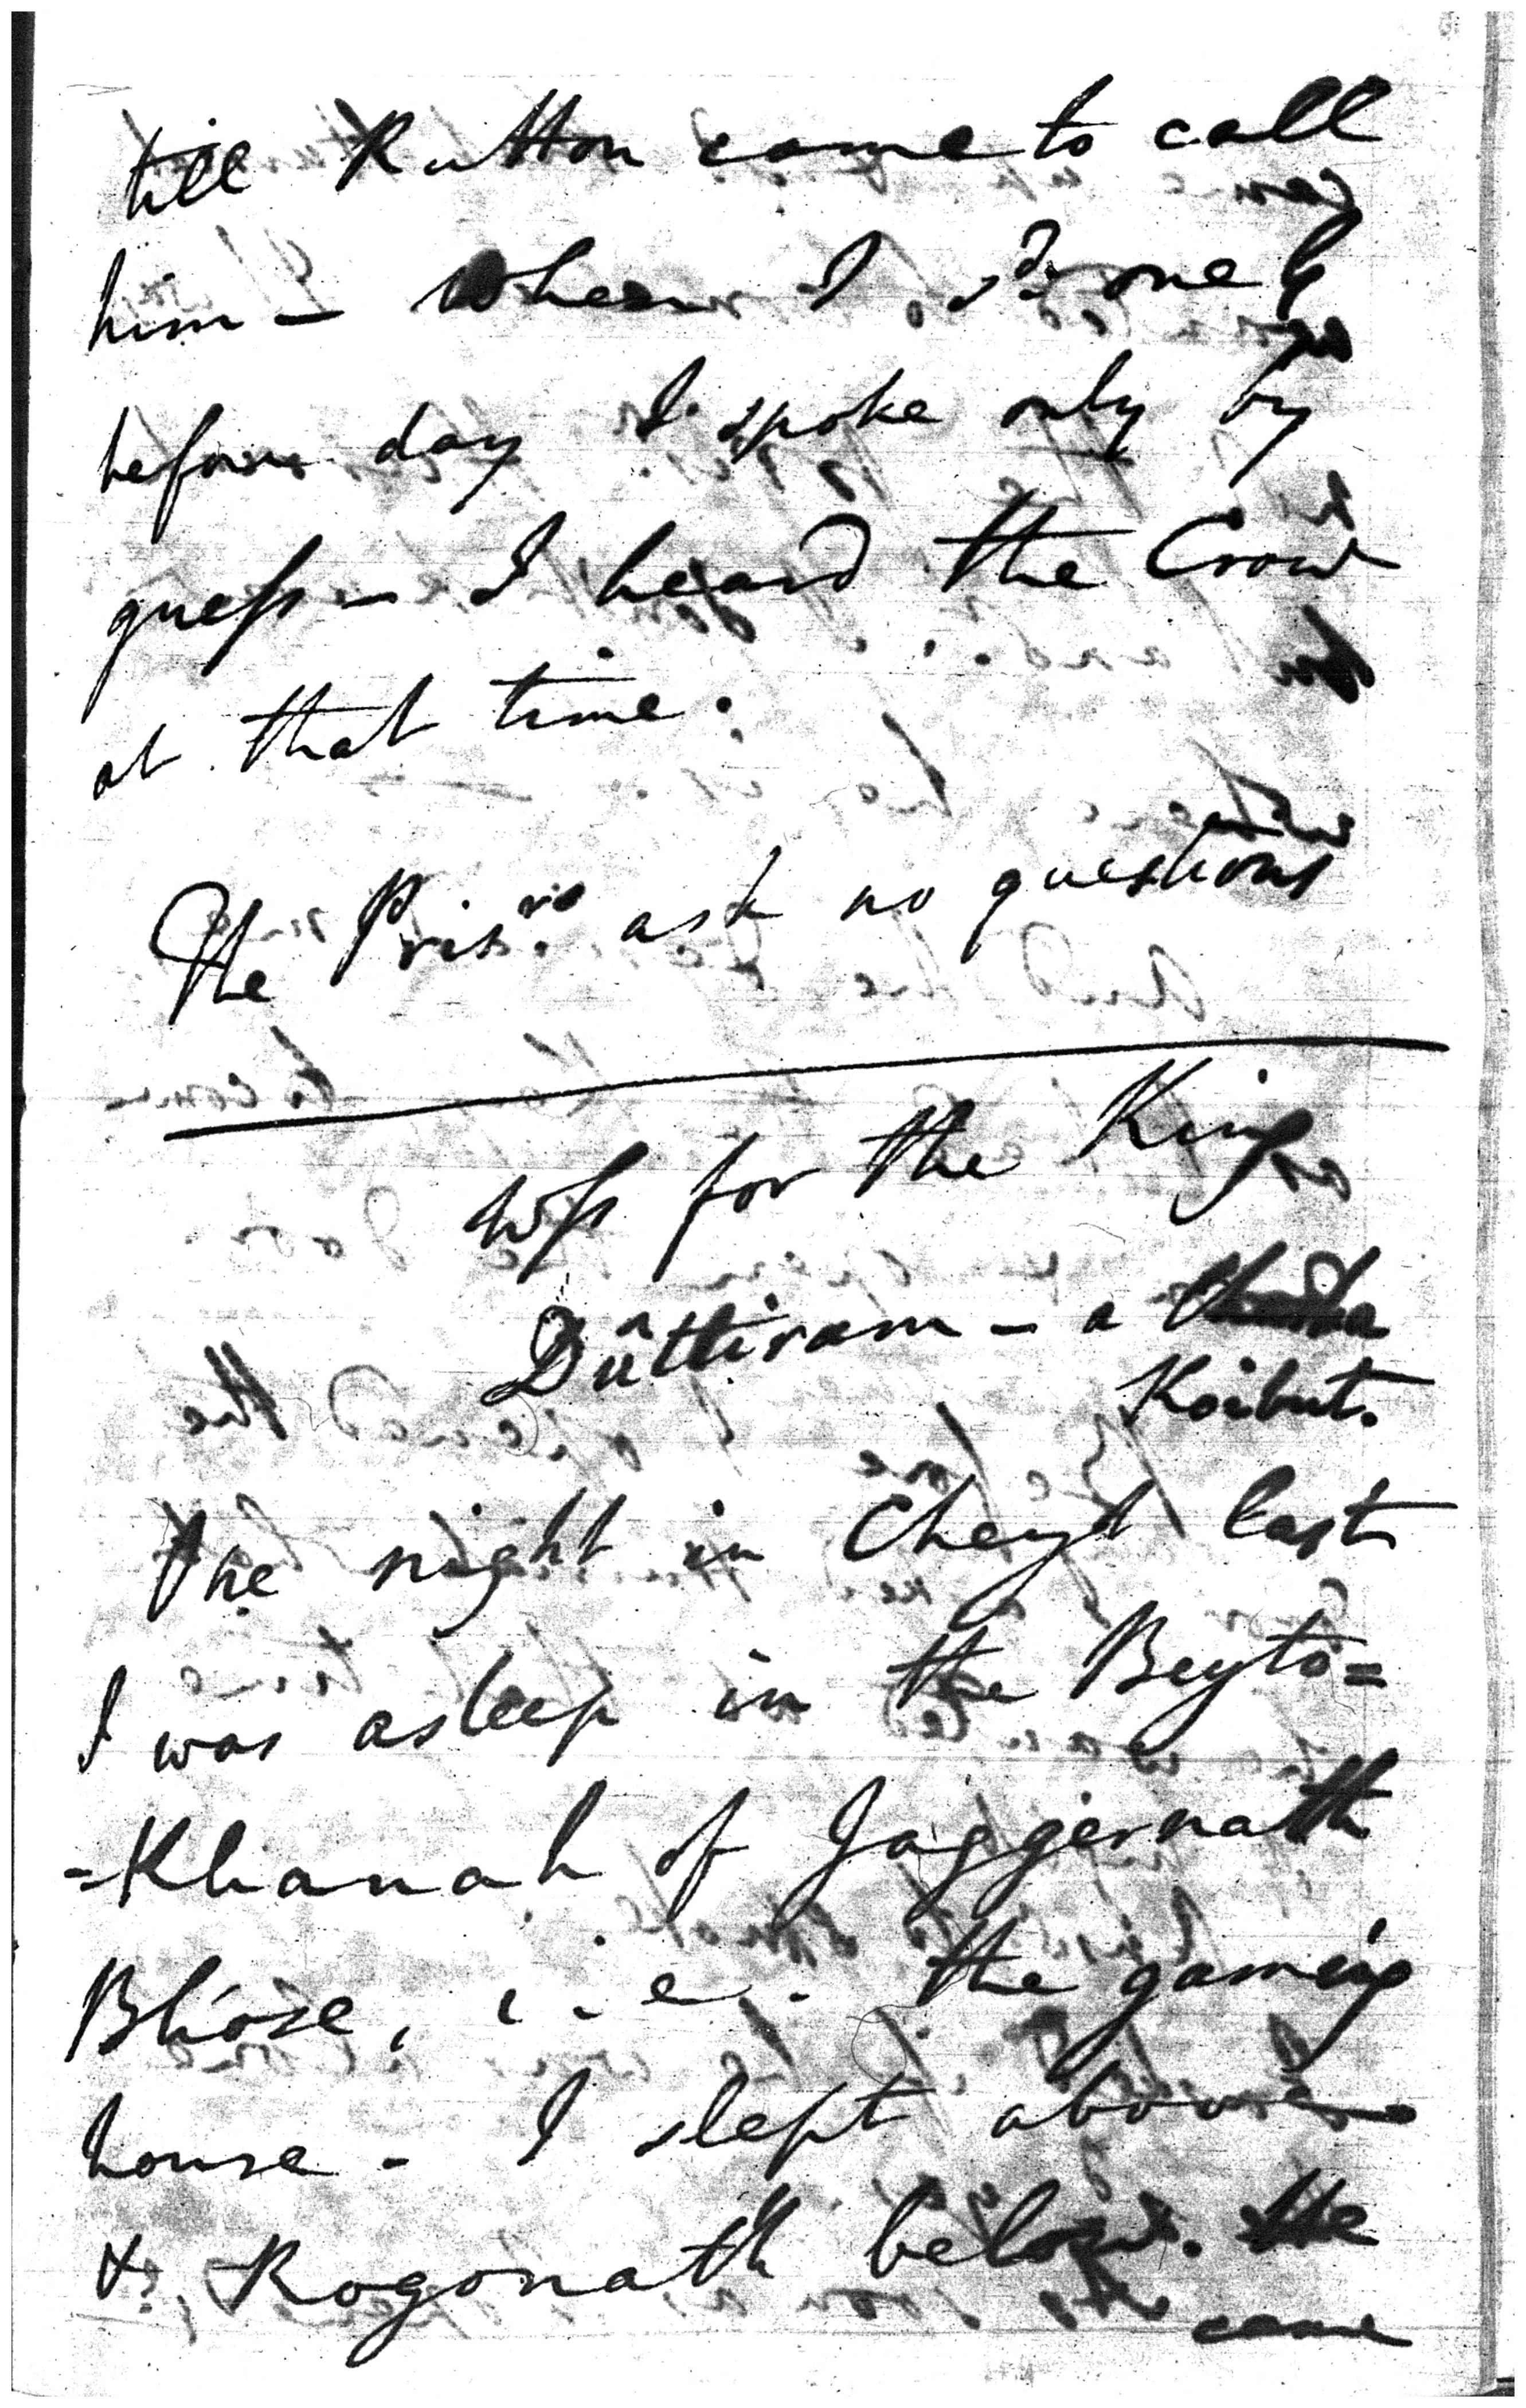 till Rutton came to call
him – when I s.d one h
before day I spoke only by
guess – I heard the Crow
at that time.
The Pris.rs ask no questions
Wss for the King
Dûttiram – a
Koibut.
The night in Cheyt last
I was asleep in the Beyto=
=Khanah of Jaggernath
Bhose, i.e. the gaming
house – I slept above
& Rogonath below. He
came